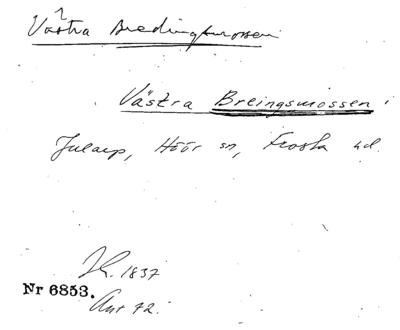 Västra Bredingsmossen
Västra Breingsmossen
Julaup, Höör sn, Frosta hd.
1837
Nr 6853.
Ant 72.